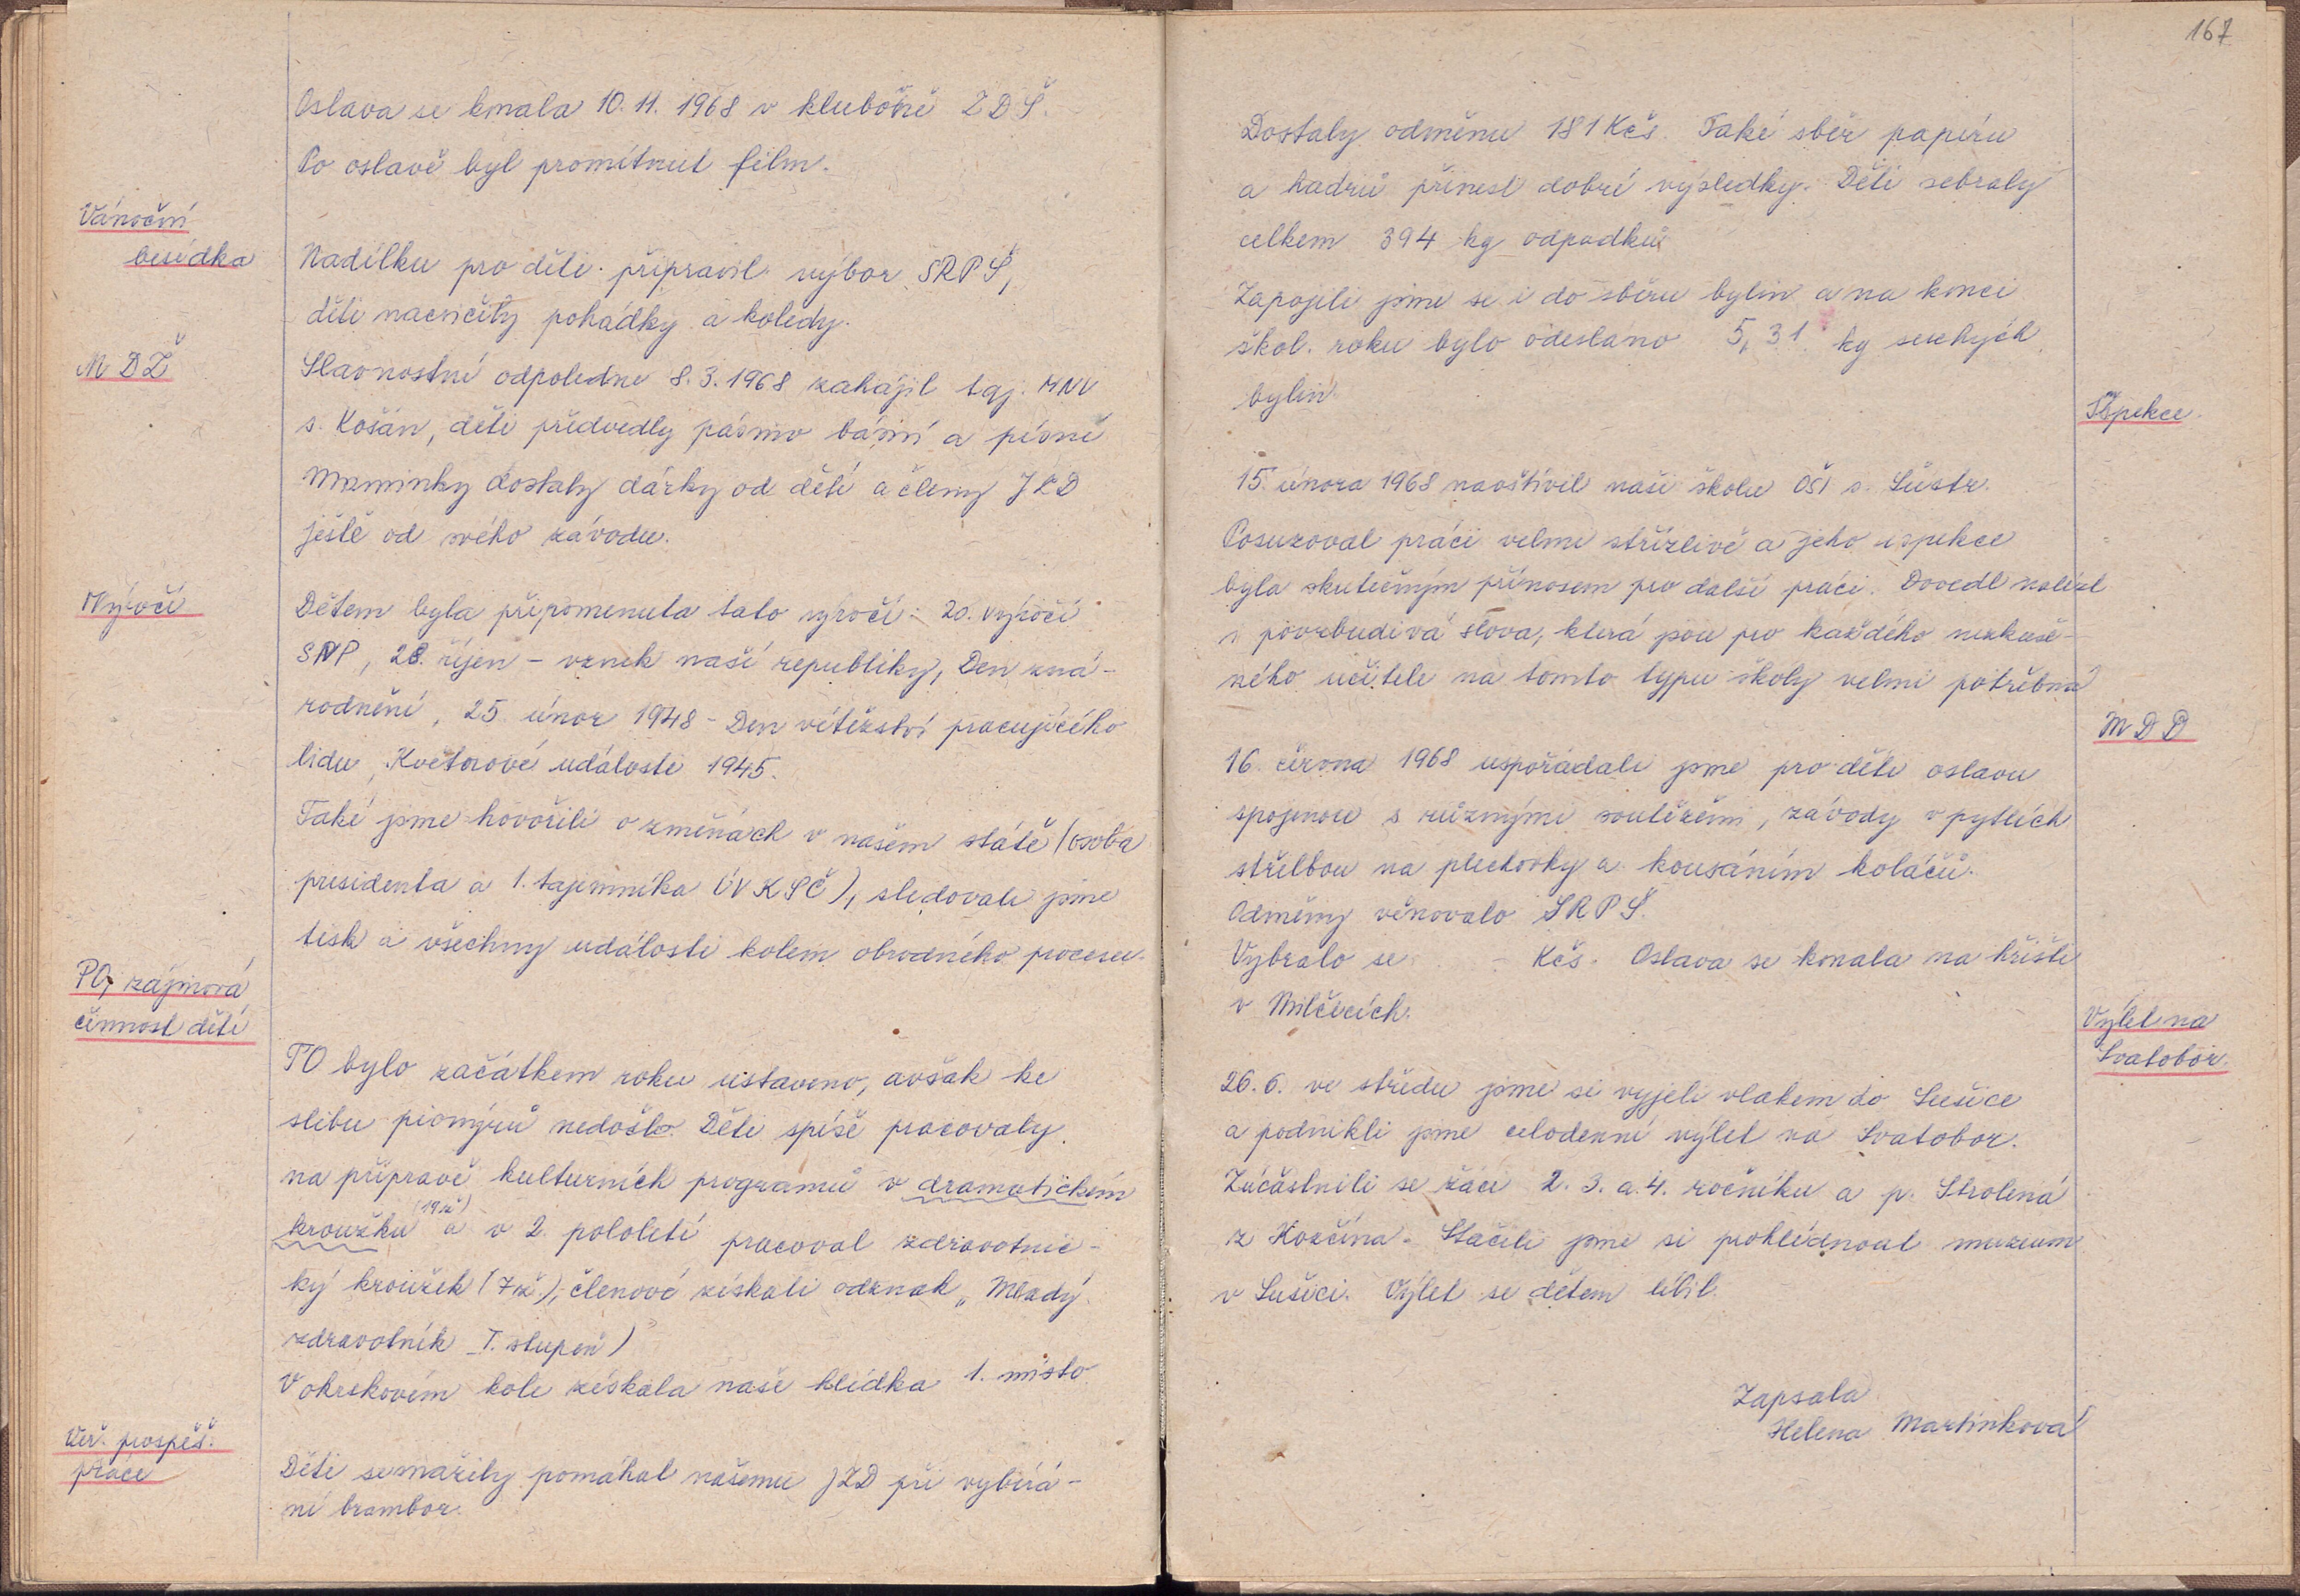 Oslava se konala 10. 11. 1968 v klubovně ZDŠ.
Po oslavě byl promítnut film.
Vánoční
besídka
Nadílku pro děti připravil výbor SRPŠ,
děti nacvičily pohádky a koledy.
MDŽ
Slavnostní odpoledne 8. 3. 1968 zahájil taj. MNV
s. Košán, děti předvedly pásmo básní a písní
Maminky dostaly dárky od dětí a členy JZD
ještě od svého závodu.
Výročí
Dětem byla připomenuta tato výročí: 20. výročí
SNP, 28. říjen - vznik naší republiky, Den zná-
rodnění, 25. únor 1948 - Den vítězství pracujícího
lidu, Květnové události 1945.
Také jsme hovořili o změnách v našem státě (osoba
presidenta a 1. tajemníka ÚV KSČ), sledovali jsme
tisk a všechny události kolem obrodného procesu.
PO, zájmová
činnost dětí
PO bylo začátkem roku ustaveno, avšak ke
slibu pionýrů nedošlo. Děti spíše pracovaly
na přípravě kulturních programů v dramatickém
kroužku (19 ž) a v 2. pololetí pracoval zdravotnic-
ký kroužek (7 ž.), členové získali odznak „Mladý
zdravotník I. stupeň")
V okrskovém kole získala naše hlídka 1. místo
Veř. prospěš.
práce
Děti pomáhal našemu JZD při vybírá-
ní brambor.
167
Dostaly odměnu 181 Kčs. Také sběr papíru
a hadrů přinesl dobré výsledky. Děti sebraly
celkem 394 kg odpadků
Zapojili jsme se i do sběru bylin a na konci
škol. roku bylo odesláno 5,31 kg suchých
bylin.
Ispekce
15. února 1968 navštívil naši školu OŠI s. Šustr.
Posuzoval práci velmi střízlivě a jeho ispekce
byla skutečným přínosem pro další práci. Dovedl nalézt
i povzbudivá slova, která jsou pro každého nezkuše-
ného učitele na tomto typu školy velmi potřebná
MDD
16. června 1968 uspořádali jsme pro děti oslavu
spojenou s různými soutěžemi, závody v pytlích
střelbou na plechovky a kousáním koláčů.
Odměny věnovalo SRPŠ.
Vybralo se - Kčs. Oslava se konala na hřišti
v Milčicích.
Výlet na
Svatobor.
26. 6. ve středu jsme si vyjeli vlakem do Sušice
a podnikli jsme celodenní výlet na Svatobor.
Zúčastnili se žáci 2. 3. a 4. ročníku a p. Strolená
z Kozčína. Stačili jsme si prohlédnout muzeum
v Sušici. Výlet se dětem líbil.
Zapsala
Helena Martínková